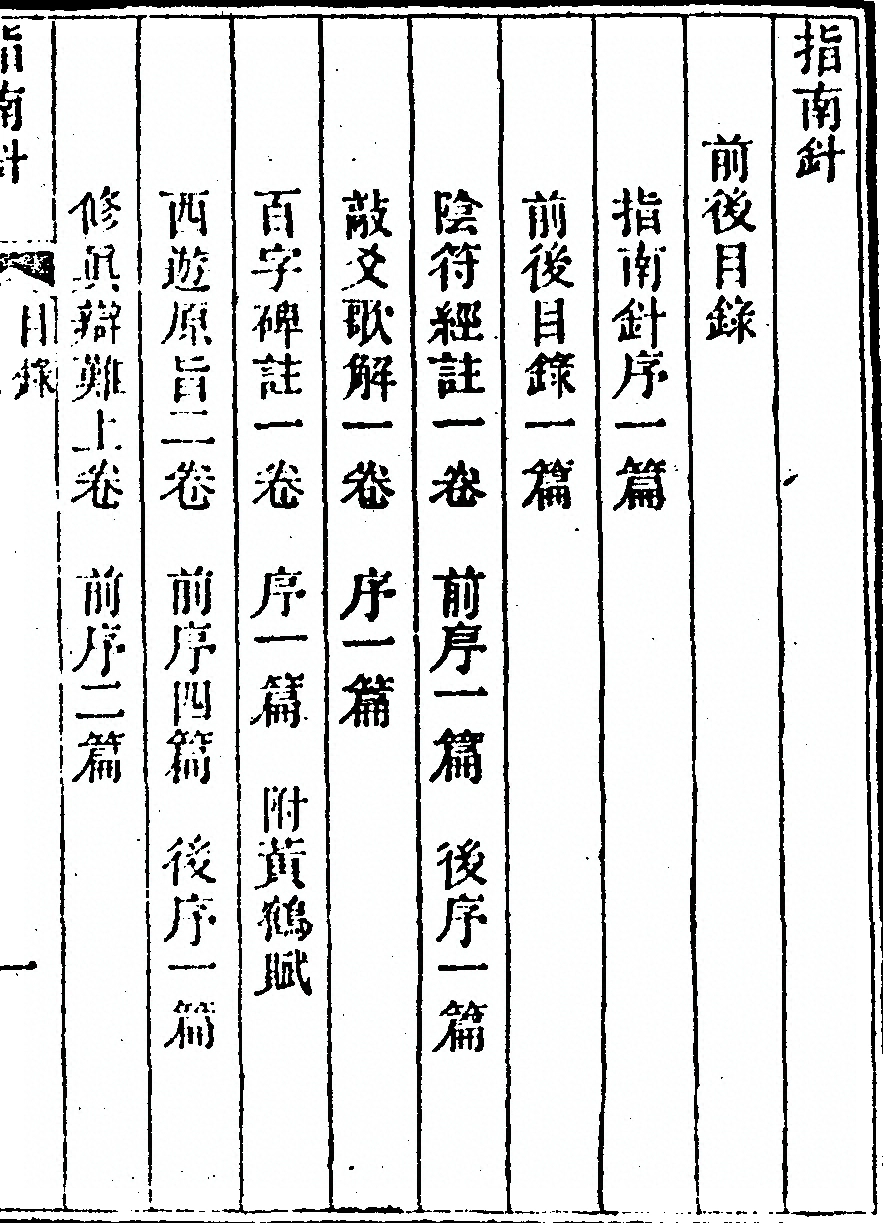 指南針
前後目錄
指南針序一篇
前後目錄一篇
陰符經註一卷 前序一篇 後序一篇
敲爻歌解一卷 序一篇
百字碑註一卷 序一篇 附黃鶴賦
西遊原旨二卷 前序四篇 後序一篇
修眞辯難上卷 前序二篇
指南針 目錄 一